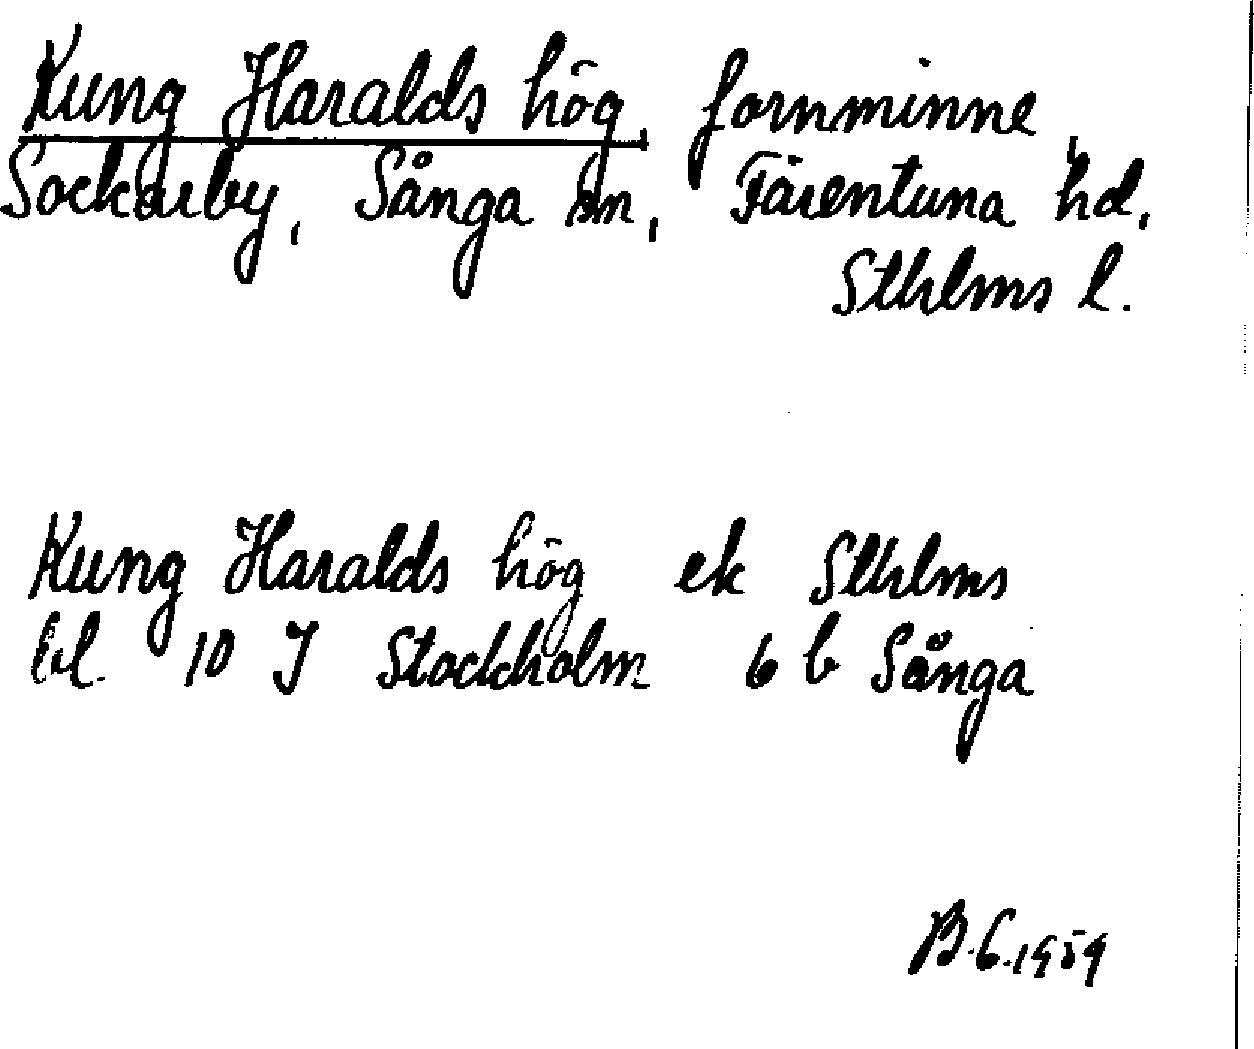 Kung Haralds hög, fornminne,
Sockarby, Sånga sn, Färentuna hd,
Sthlms l.
Kung Haralds hög ek Sthlms
bl. 10 I Stockholm 6 b Sånga
B.G. 1959